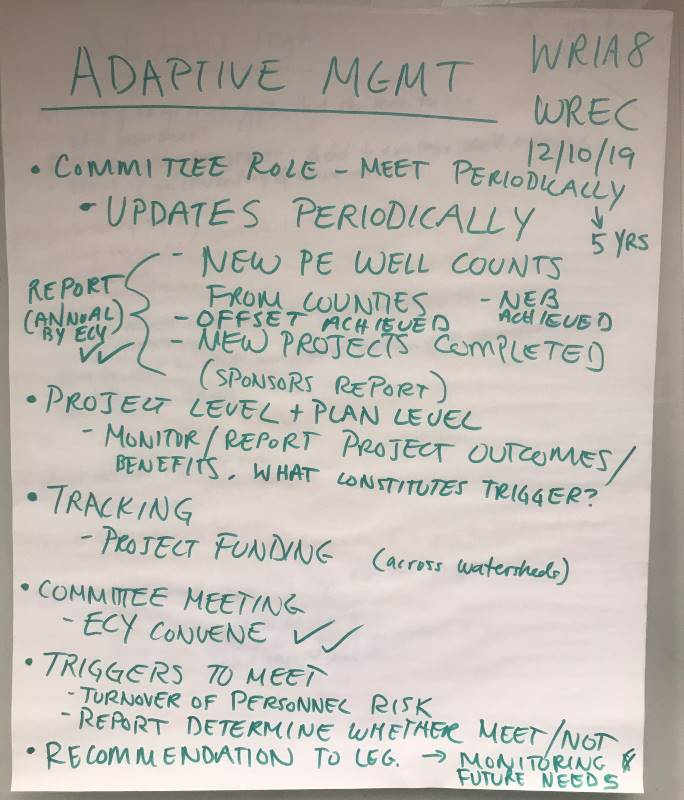 ADAPTIVE MGMT
WRIA8
WREC
12/10/19
• COMMITTEE ROLE - MEET PERIODICALLY
↓
5 YRS
• UPDATES PERIODICALLY
REPORT
(ANNUAL)
BY ECY
✓✓
- NEW PE WELL COUNTS
FROM COUNTIES - NEB
ACHIEVED
- OFFSET ACHIEVED
- NEW PROJECTS COMPLETED
(SPONSORS REPORT)
• PROJECT LEVEL + PLAN LEVEL
- MONITOR/REPORT PROJECT OUTCOMES/
BENEFITS. WHAT CONSTITUTES TRIGGER?
• TRACKING
- PROJECT FUNDING (across watersheds)
• COMMITTEE MEETING
- ECY CONVENE ✓✓
• TRIGGERS TO MEET
- TURNOVER OF PERSONNEL RISK
- REPORT DETERMINE WHETHER MEET/NOT
• RECOMMENDATION TO LEG. → MONITORING &
FUTURE NEEDS